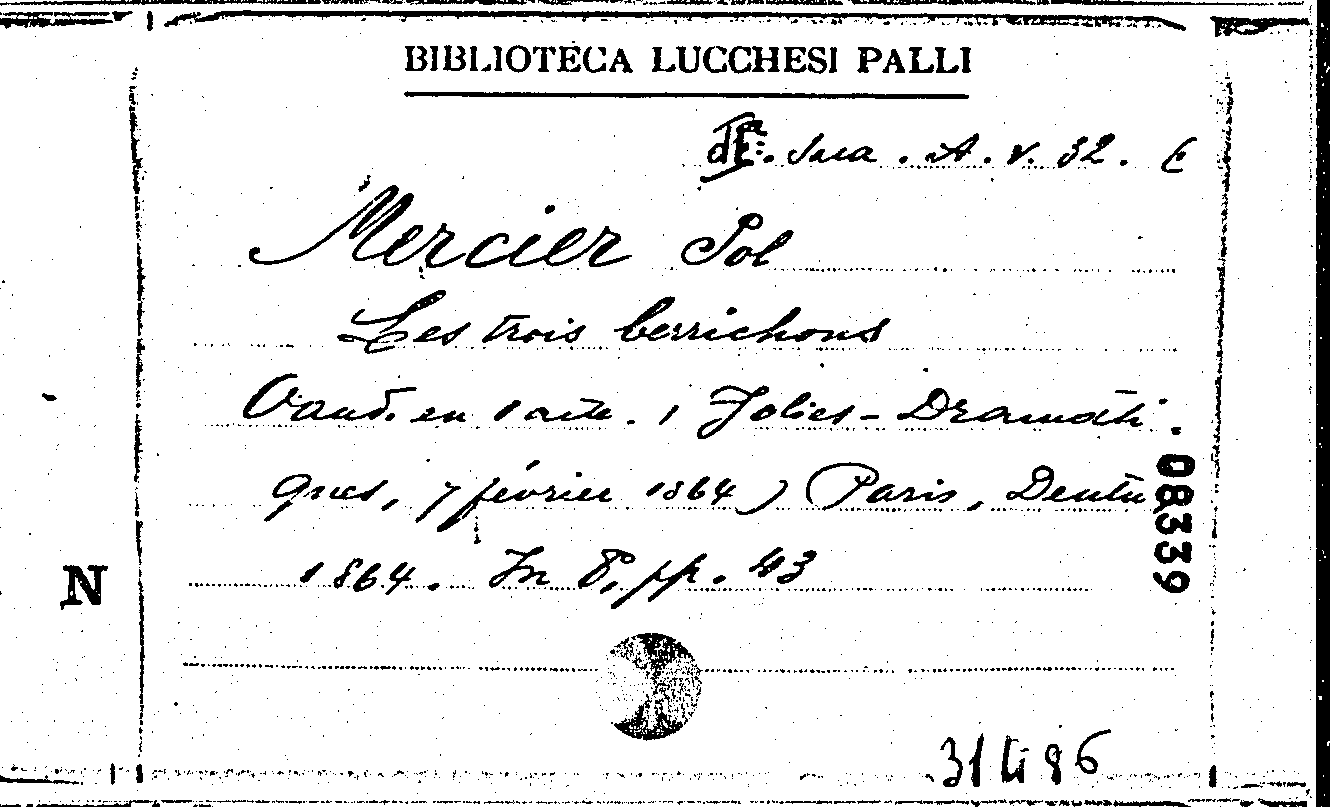 BIBLIOTECA LUCCHESI PALLI
A. V. 32.
Mercier Pol
Les trois berrichons
Vaud. en 1 acte. Folies-Dramati-
ques, 7 février 1864) (Paris, Dentu
1864. In 8, pp. 43
08339
N